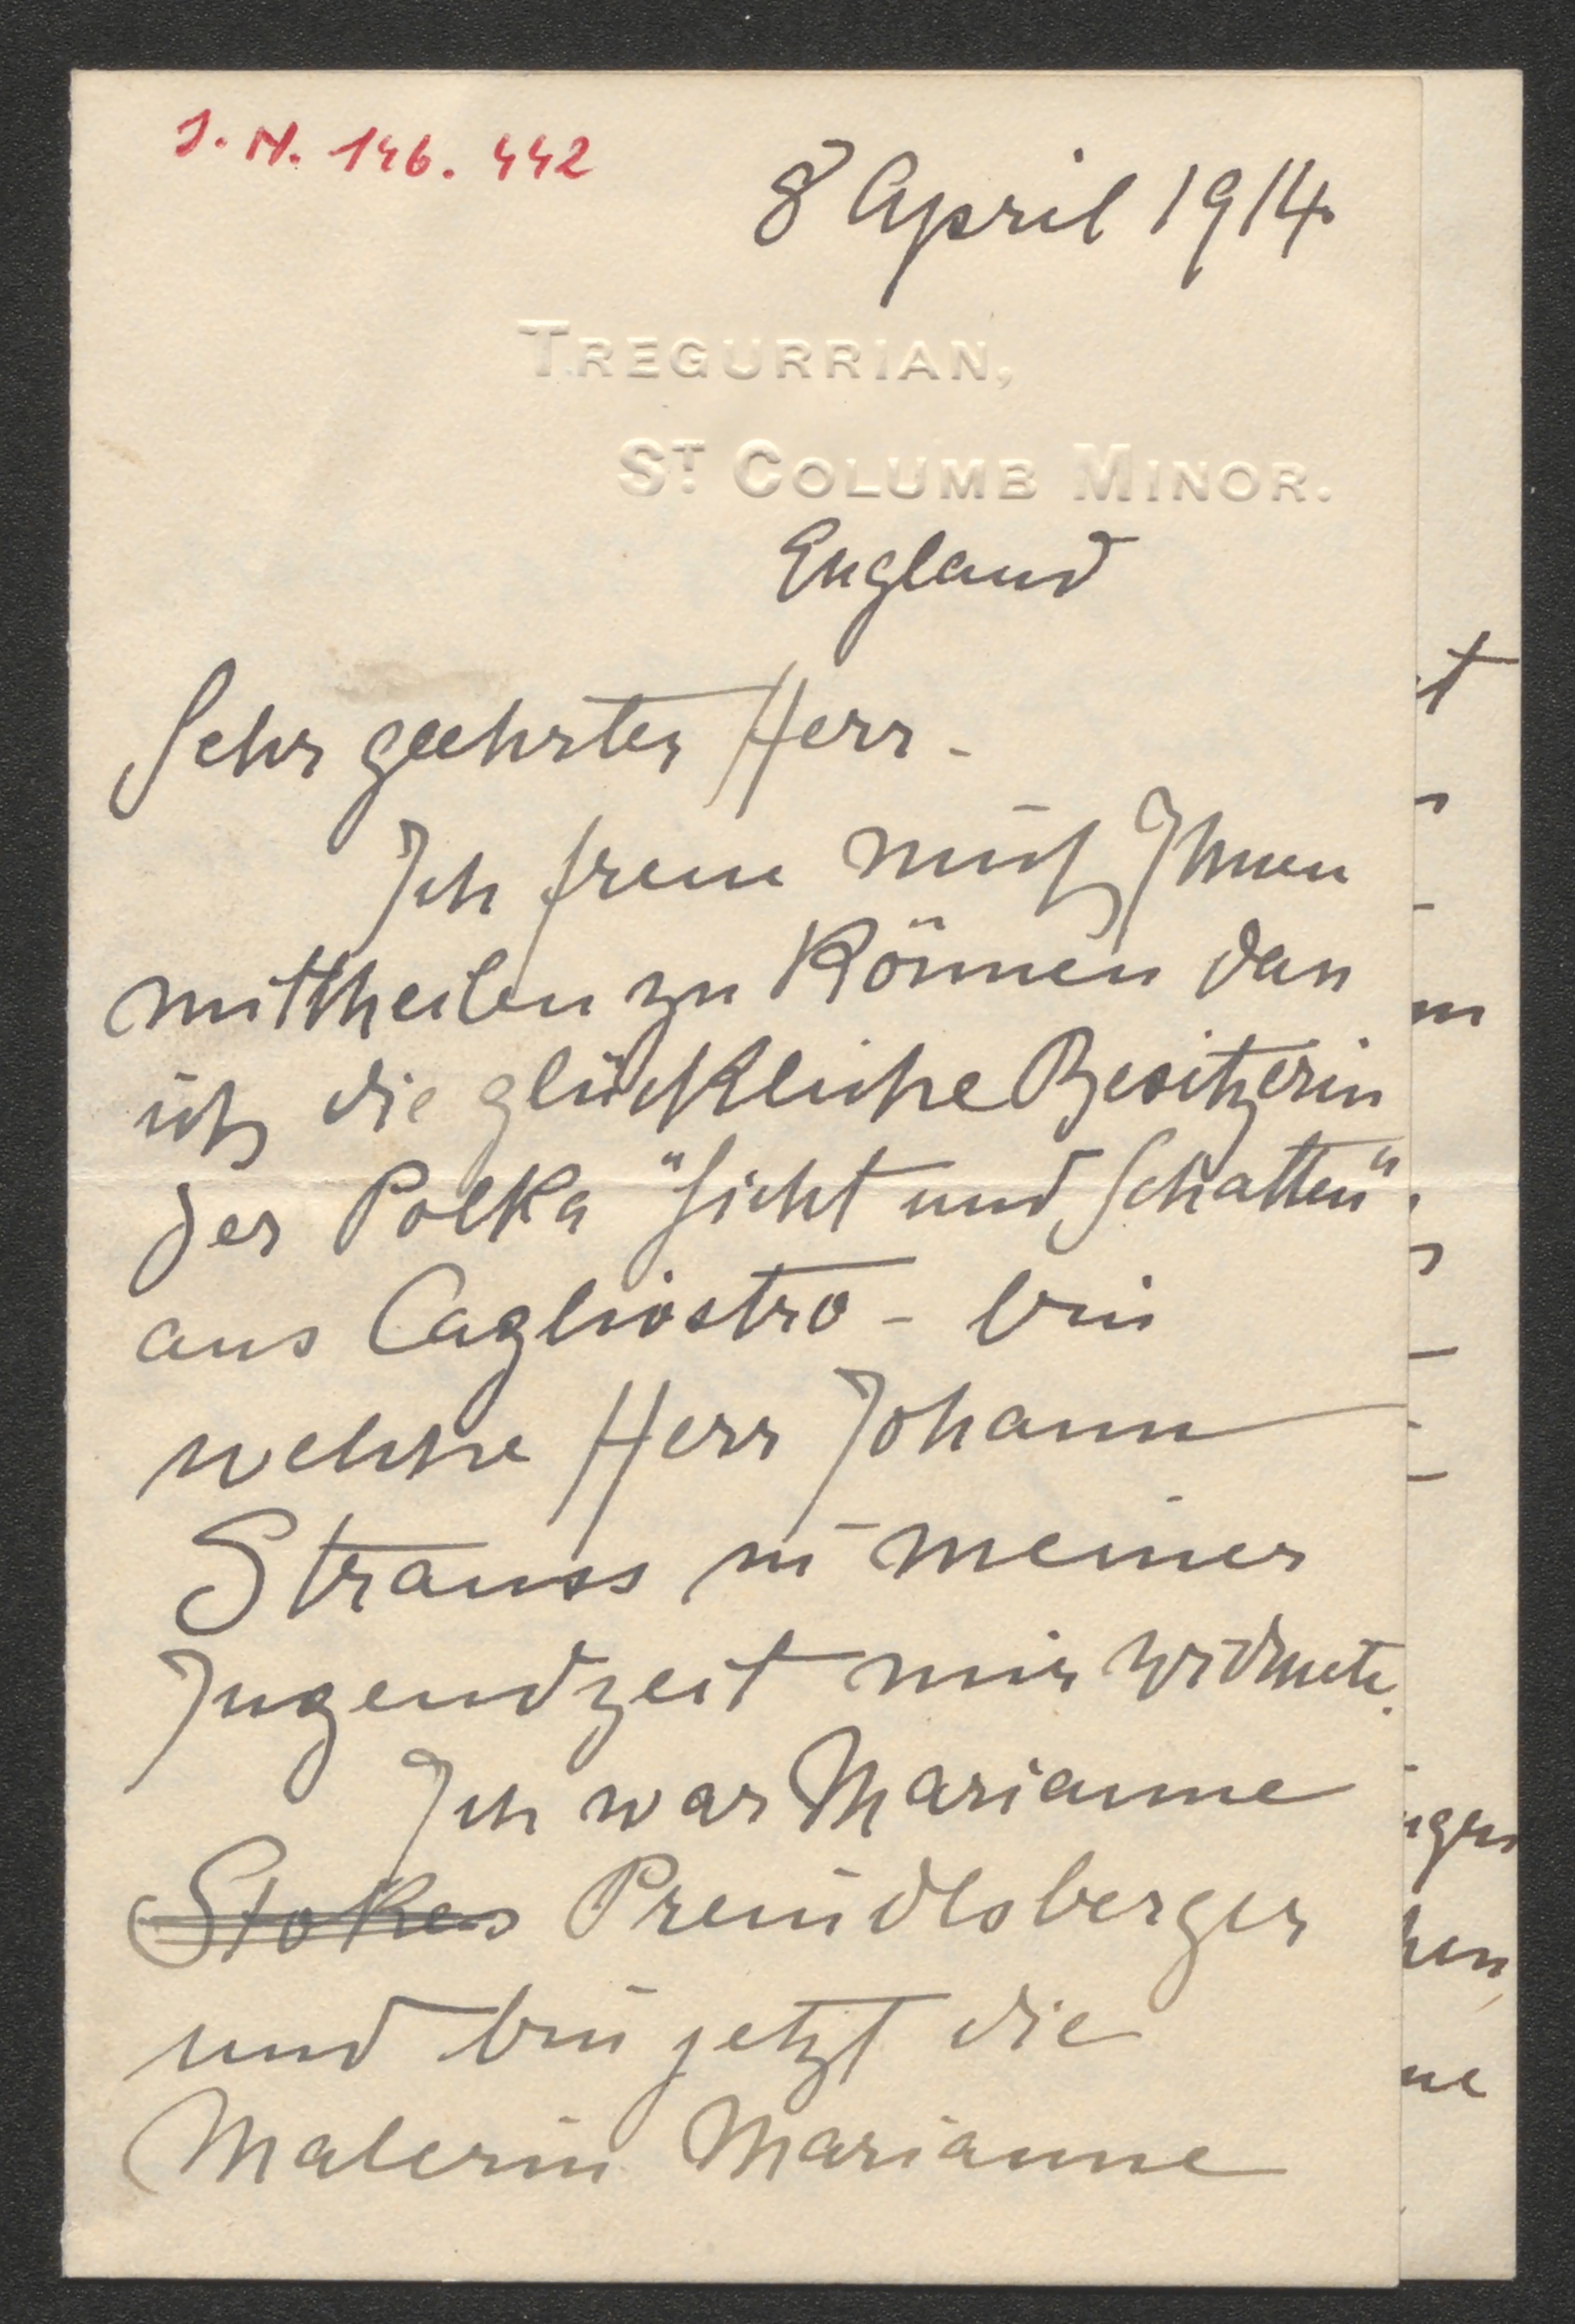 J. N. 146. 442
8 April 1914.
TREGURRIAN,
ST. COLUMB MINOR.
England
Sehr geehrter Herr -
Ich freue mich Ihnen
mittheilen zu Können dass
ich die glückliche Besitzerin
der Polka "Licht und Schatten"
aus Cagliostro - bin
welche Herr Johann
Strauss in meiner
Jugendzeit mir widmete.
Ich war Marianne
Stokes Preindlsberger
und bin jetzt die
Malerin Marianne